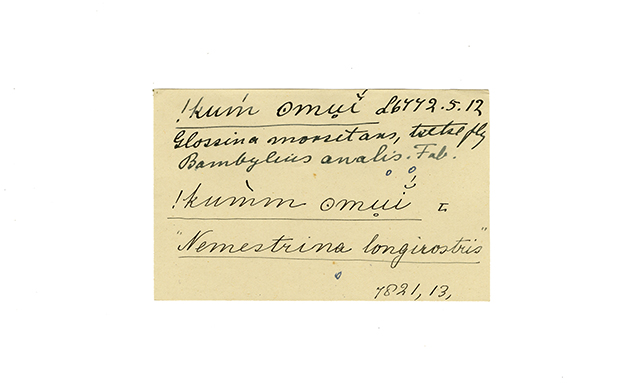 !kuḿ ʘmụĭ L6772.5.12
Glossina morsitans, tsetse fly
Bombylius analis. Fab.
!kum̀m ʘmụĭ I
"Nemestrina longirostris"
7821, 13,